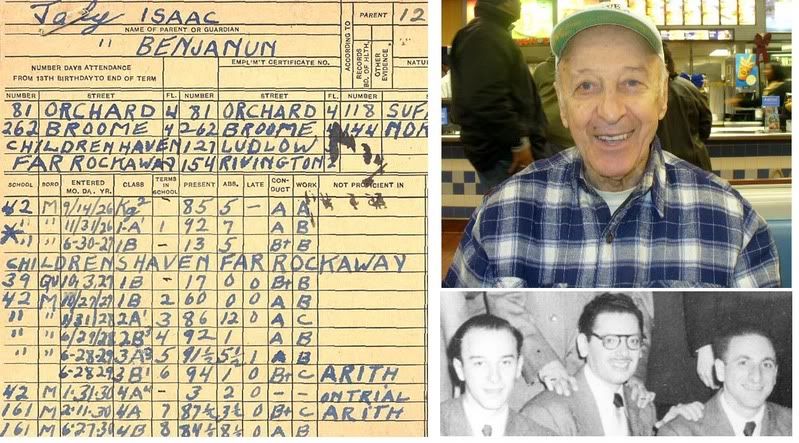 ISAAC PARENT 12
NAME OF PARENT OR GUARDIAN
" BENJANUN
ACCORDING TO
RECORDS BD. OF HLTH.
OTHER EVIDENCE
NUMBER DAYS ATTENDANCE
FROM 13TH BIRTHDAY TO END OF TERM
EMPL'M'T CERTIFICATE NO.
NATU
NUMBER STREET FL. NUMBER STREET FL. NUMBER
81 ORCHARD 4 81 ORCHARD 4 118 SUFF
262 BROOME 4 262 BROOME 4 144 NOR
CHILDREN HAVEN 127 LUDLOW
FAR ROCKAWAY 154 RIVINGTON
SCHOOL BORO ENTERED MO. DA. YR. CLASS TERMS IN SCHOOL PRESENT ABS. LATE CONDUCT WORK NOT PROFICIENT IN
42 M 9/14/26 85 5 - A A
" " 1/31/26 1-A 1 92 7 A B
" " 6-30-27 1B - 13 5 B+ B
CHILDRENS HAVEN FAR ROCKAWAY
39 QU 10.3.27 1B - 17 0 0 B+ B
42 M 10/27/27 1B 2 60 0 0 A B
" " 1/31/28 2A 3 86 12 0 A C
" " 6/29/28 2B 4 92 1 A B
" " 6-28-29 3A 5 91½ 5½ 1 A B
6-28-29 3B 6 94 1 0 B+ C ARITH
42 M 1-31-30 4A - 3 2 0 - - ON TRIAL
161 M 2-11-30 4A 7 87½ 3½ 0 B+ C ARITH
161 M 6-27-30 4B 8 84½ 8½ 0 A B